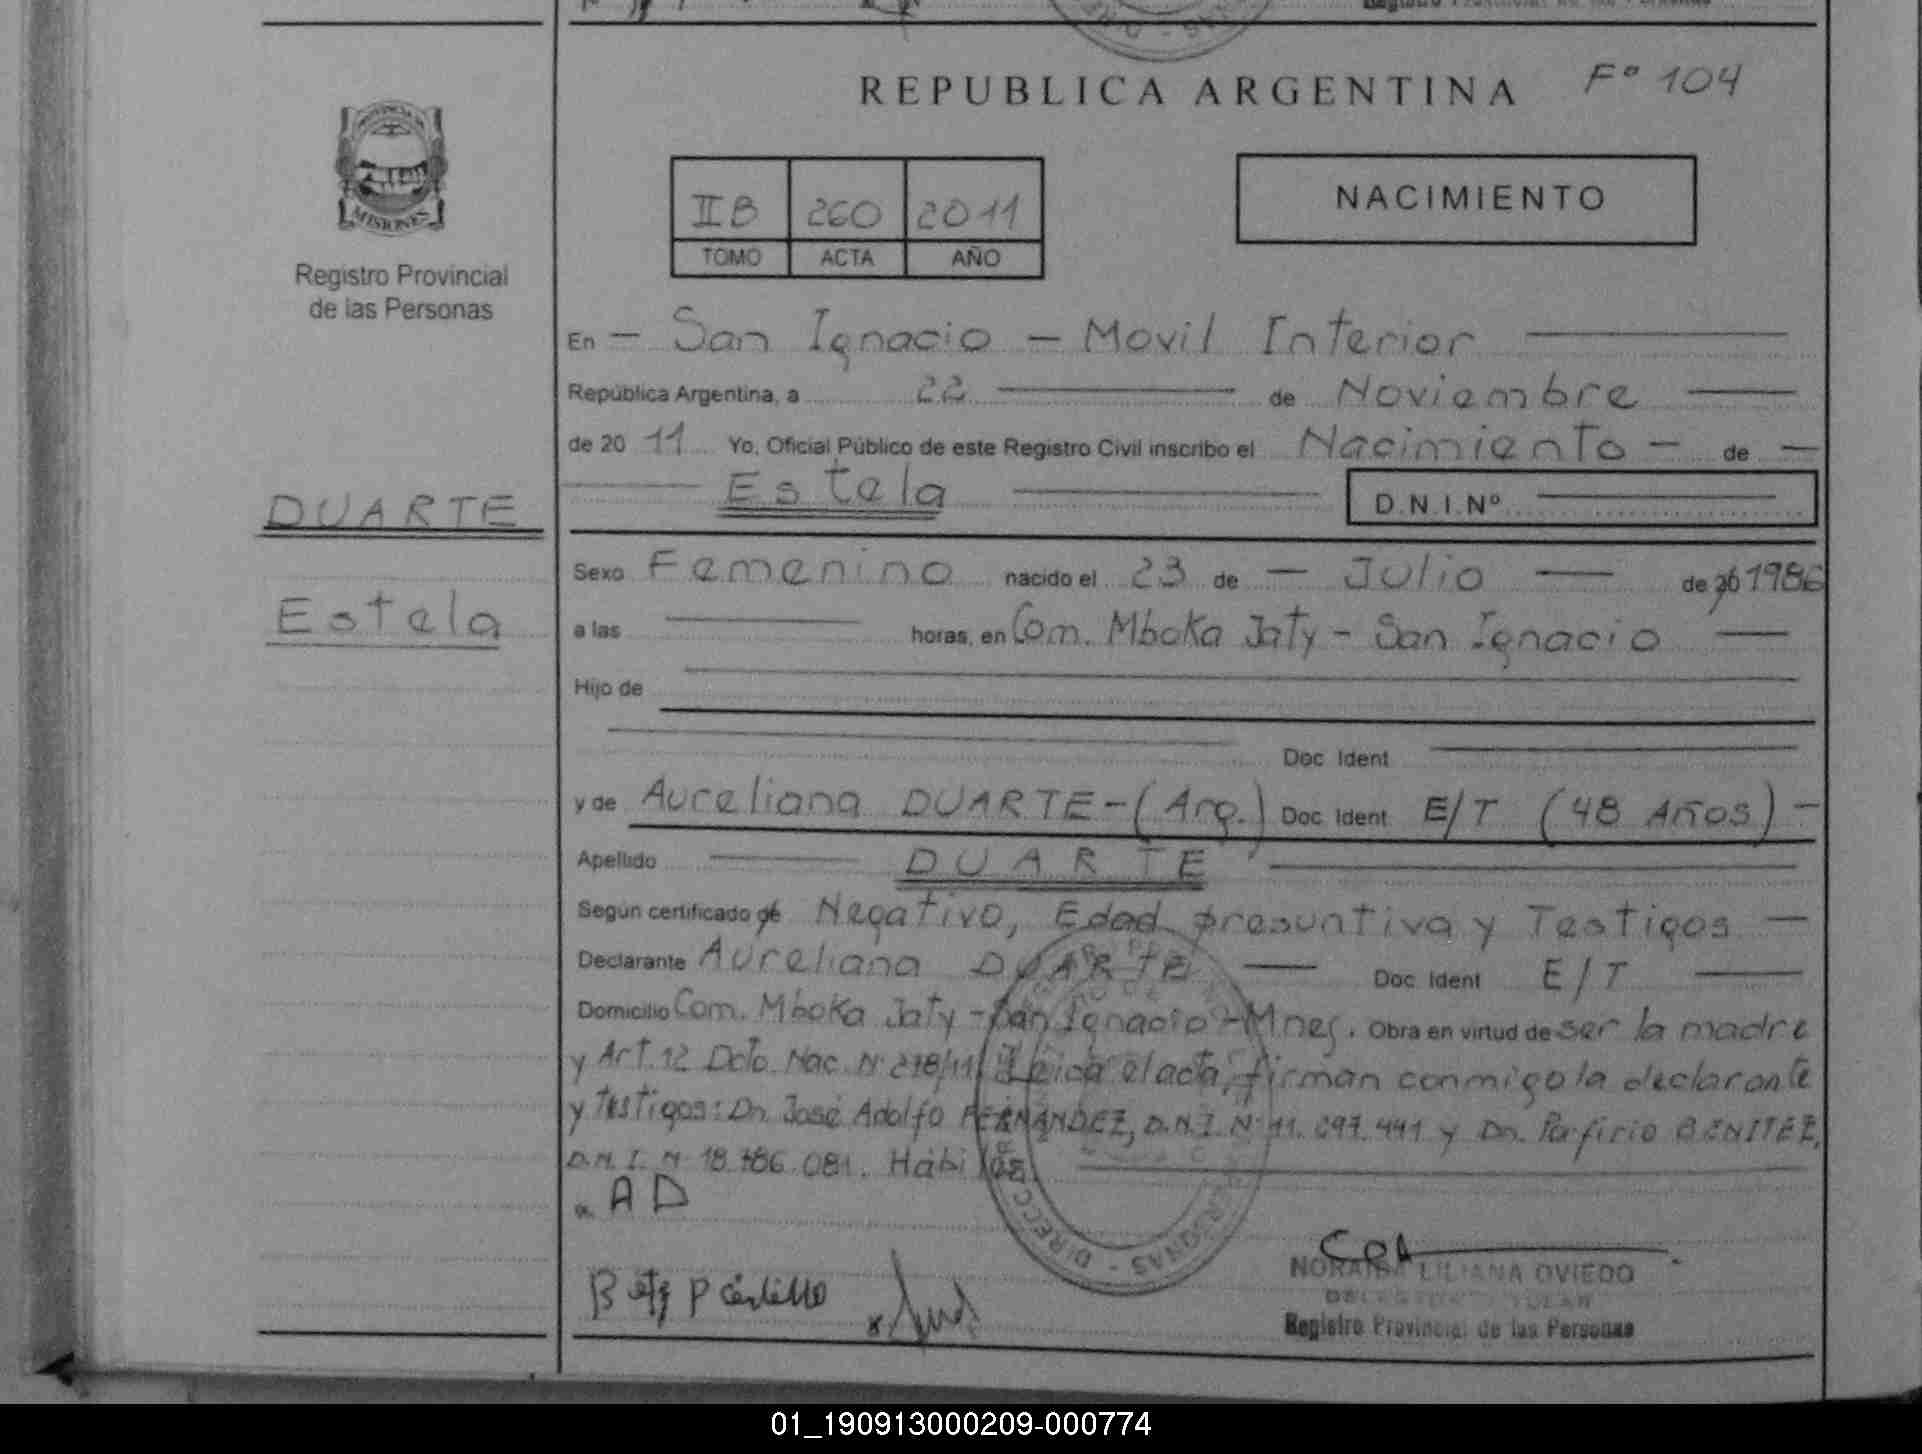 REPUBLICA ARGENTINA
Fº 104
PROVINCIA DE
MISIONES
Registro Provincial
de las Personas
II B 260 2011
TOMO ACTA AÑO
NACIMIENTO
En — San Ignacio — Movil Interior
República Argentina, a 22 de Noviembre
de 20 11 Yo, Oficial Público de este Registro Civil inscribo el Nacimiento — de —
Estela
D.N.I.Nº
DUARTE
Estela
Sexo Femenino nacido el 23 de — Julio — de 20 1986
a las horas, en Com. Mboka Jaty - San Ignacio
Hijo de
Doc. Ident.
y de Aureliana DUARTE - (Arg.) Doc. Ident. E/T (48 Años) —
Apellido DUARTE
Según certificado de Negativo, Edad presuntiva y Testigos —
Declarante Aureliana DUARTE — Doc. Ident. E/T
Domicilio Com. Mboka Jaty - San Ignacio - Mnes. Obra en virtud de ser la madre
y Art. 12 Dcto. Nac. Nº 278/11 Leida el acta, firman conmigo la declarante
y testigos: Dn. José Adolfo FERNÁNDEZ, D.N.I. Nº 11. 441 y Dn. Porfirio BENITEZ,
D.N.I. Nº 18.786.081. Hábiles.
AD
NORAIDA LILIANA OVIEDO
Registro Provincial de las Personas
01_190913000209-000774